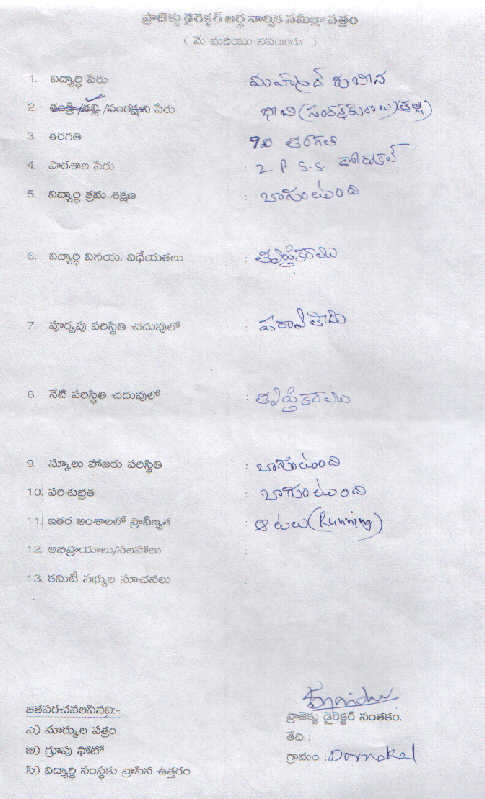 ప్రాజెక్టు డైరెక్టర్ అర్ధ వార్షిక సమీక్షా పత్రం
1. విద్యార్థి పేరు
2. తండ్రి/తల్లి/సంరక్షకుని పేరు : (సంరక్షకురాలు)
3. తరగతి
4. పాఠశాల పేరు : Z P S S
5. విద్యార్థి క్రమ శిక్షణ : బాగుంది
6. విద్యార్థి వినయ, విధేయతలు : తృప్తికరము
7. పూర్వపు పరిస్థితి చదువులో :
8. నేటి పరిస్థితి చదువులో : తృప్తికరము
9. స్కూలు హాజరు పరిస్థితి : బాగుంది
10. పరిశుభ్రత : బాగుంది
11. ఇతర అంశాలలో ప్రావీణ్యత : ఆటలు (Running)
12. అభిప్రాయాలు/సలహాలు :
13. కమిటీ సభ్యుల సూచనలు :
జతపరచవలసినవి:-
ఎ) మార్కుల పత్రం
బి) గ్రూపు ఫోటో
సి) విద్యార్థి సంస్థకు వ్రాసిన ఉత్తరం
ప్రాజెక్టు డైరెక్టర్ సంతకం.
తేది :
గ్రామం : Dornakal